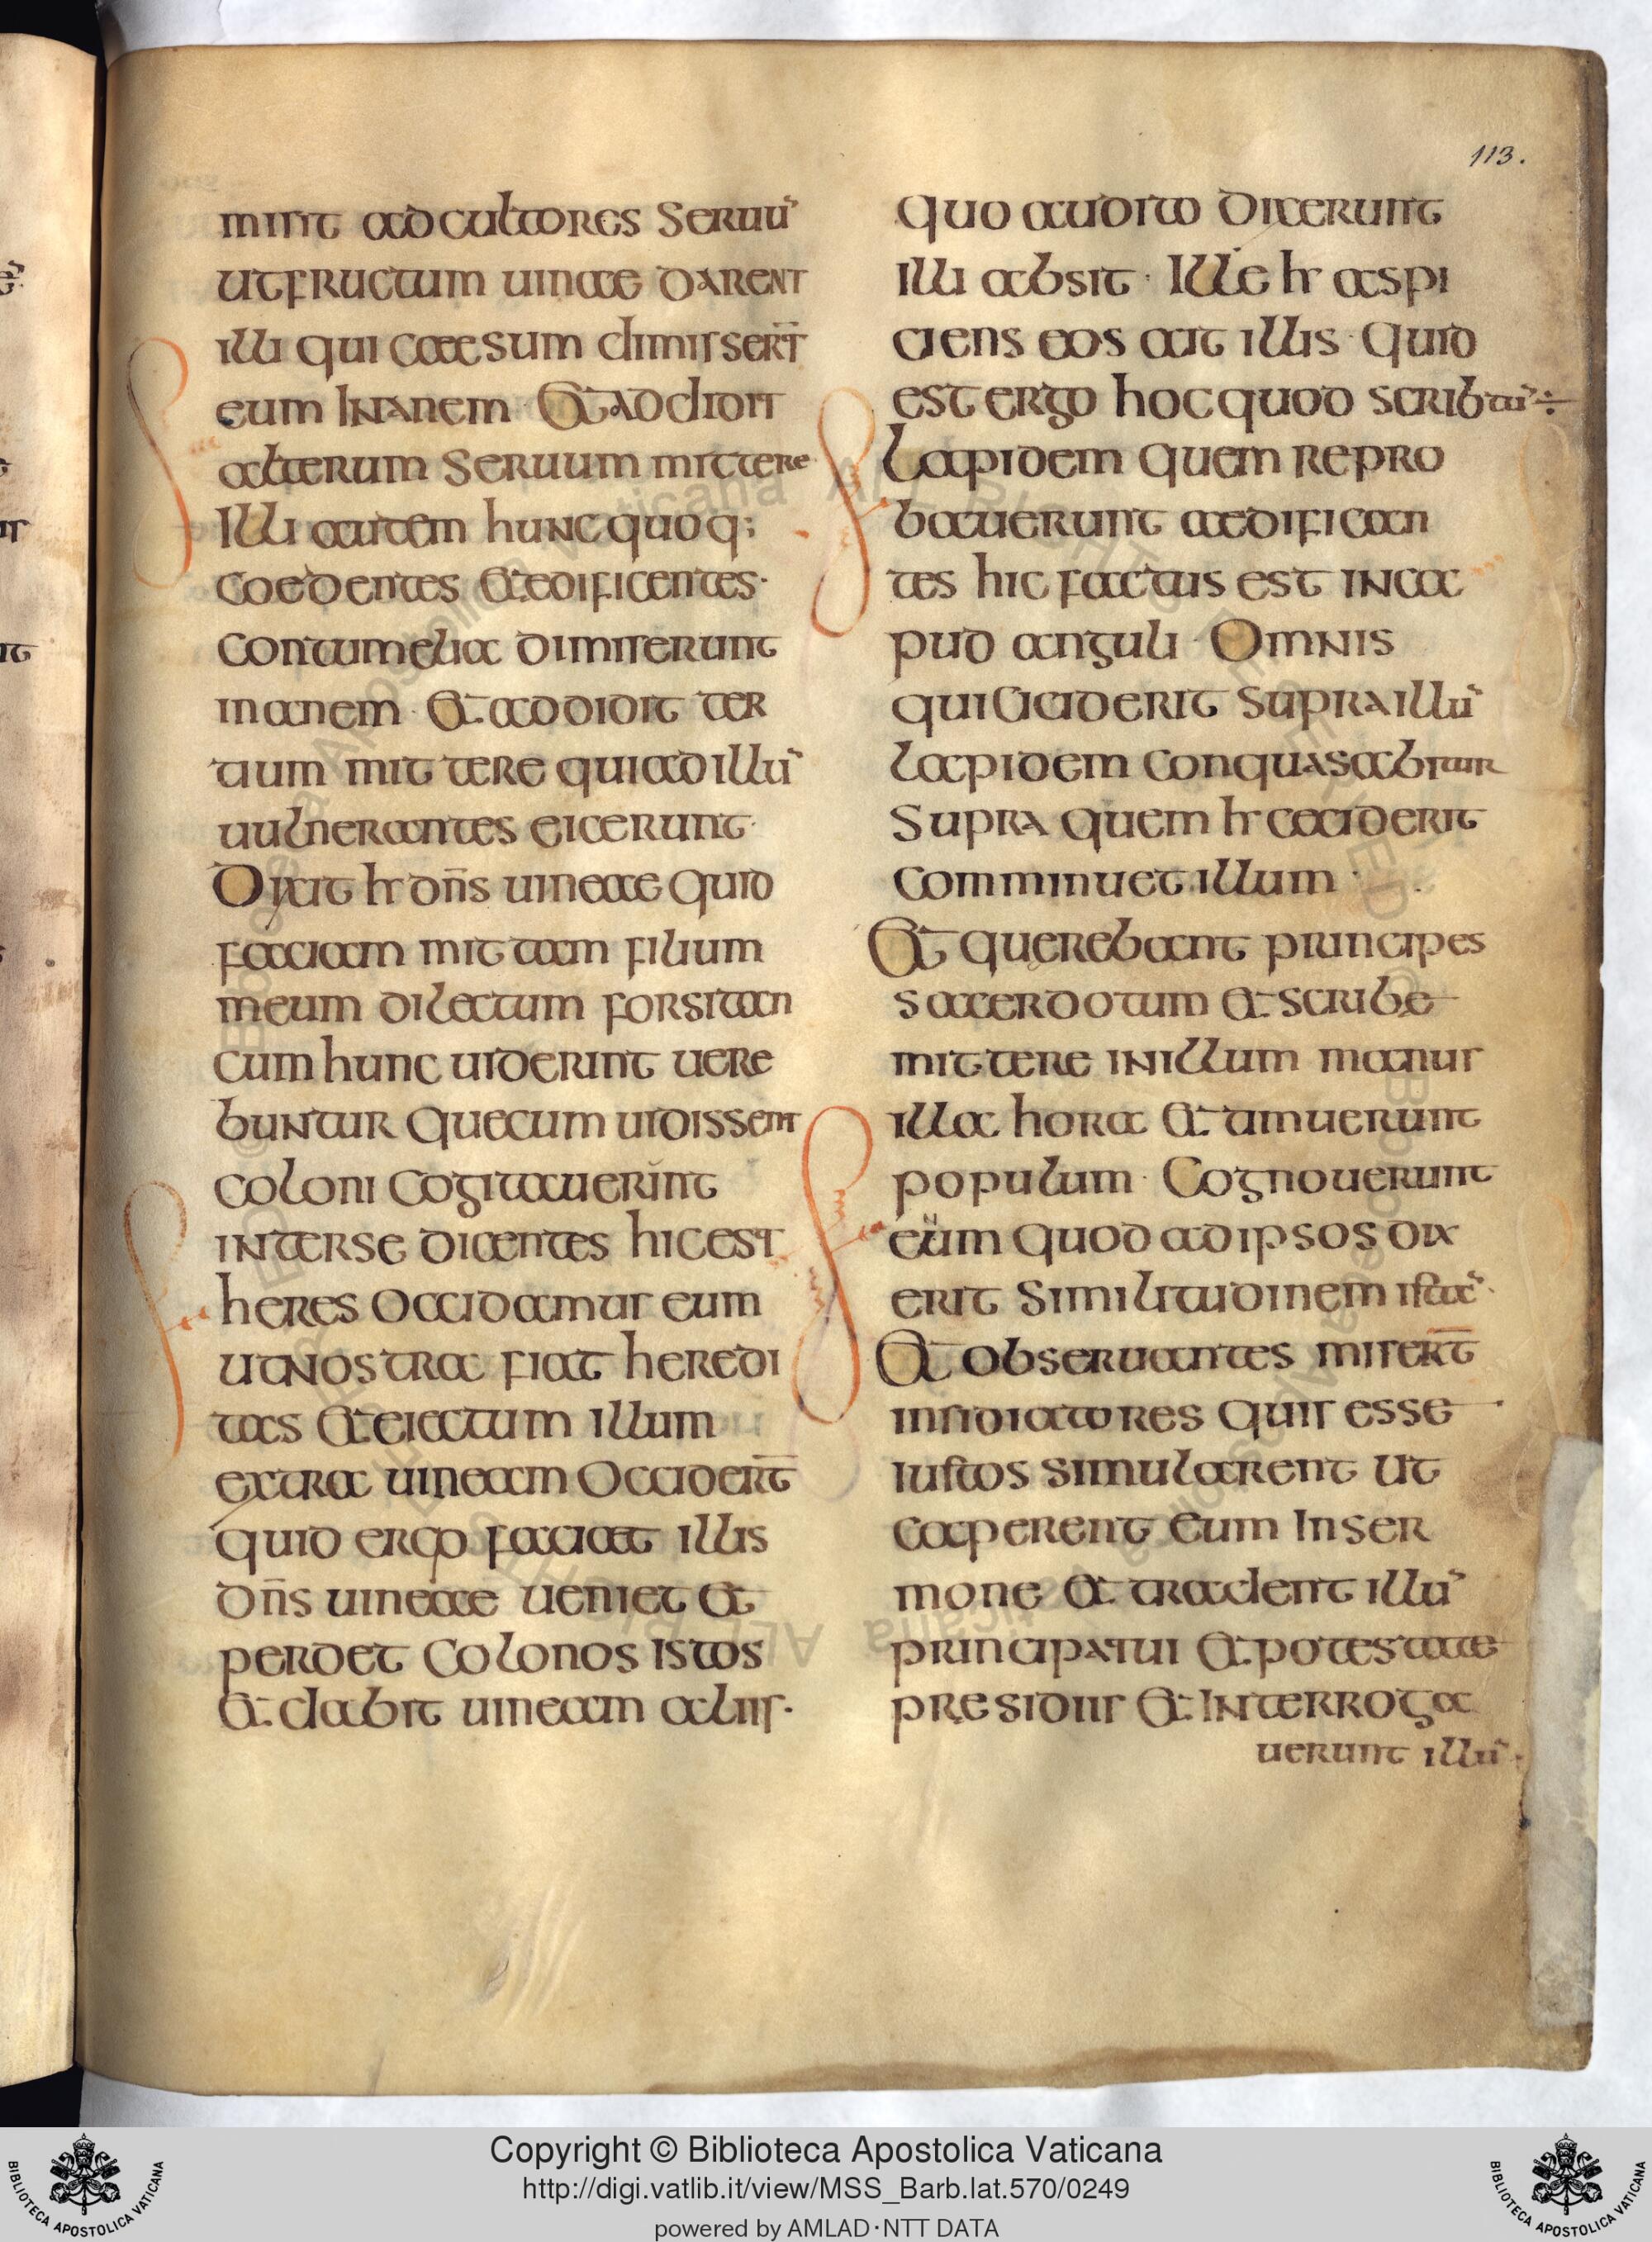 113.
misit ad cultores seruū
ut fructum uinae darent
illi qui caesum dimisserт̄
eum inanem Et addidit
alterum seruum mittere
Illi autem hunc quoq;
coedentes et edificentes·
contumelia dimiserunt
inanem· Et addidit ter
tium mittere qui ad illū
uulnerantes eicerunt·
Dixit hr dn̄s uineae quid
faciam mittam filium
meum dilectum forsitan
cum hunc uiderint uere
buntur quecum uidissent
coloni cogitauerint
interse dicentes hic est
heres occidamus eum
ut nostra fiat heredi
tas et eiectum illum
extra uineam occiderт̄
quid ergo faciaet illis
dn̄s uineae ueniet et
perdet colonos istos
et dabit uineam aliis·
quo audito dixerunt
illi absit· Ille hr aspi
ciens eos ait illis· quid
est ergo hoc quod scribtū ÷
Lapidem quem repro
bauerunt aedifican
tes hic factus est in ca
pud anguli· Omnis
qui ciciderit supra illū
lapidem conquasabitur
supra quem hr caciderit
comminuet illum·
Et querebant principes
sacerdotum et scribe
mittere in illum manus
illa hora et timuerunt
populum· Cognouerunt
eüm quod ad ipsos dix
erit similitudinem istā·
Et obseruantes miserт̄
insidiatores quis esse
iustos simularent ut
caperent eum in ser
mone et tradent illū
principatui et potestate
presidiis et interroga
uerunt illū·
Copyright © Biblioteca Apostolica Vaticana
http://digi.vatlib.it/view/MSS_Barb.lat.570/0249
powered by AMLAD·NTT DATA
BIBLIOTECA APOSTOLICA VATICANA
BIBLIOTECA APOSTOLICA VATICANA